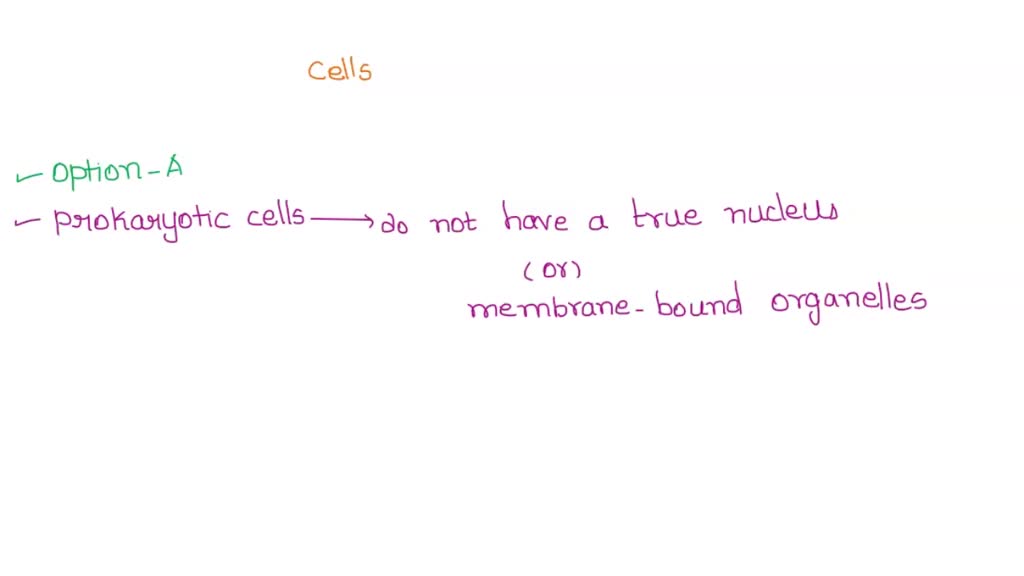 Cells
✓ option-A
✓ prokaryotic cells → do not have a true nucleus
(or)
membrane-bound organelles